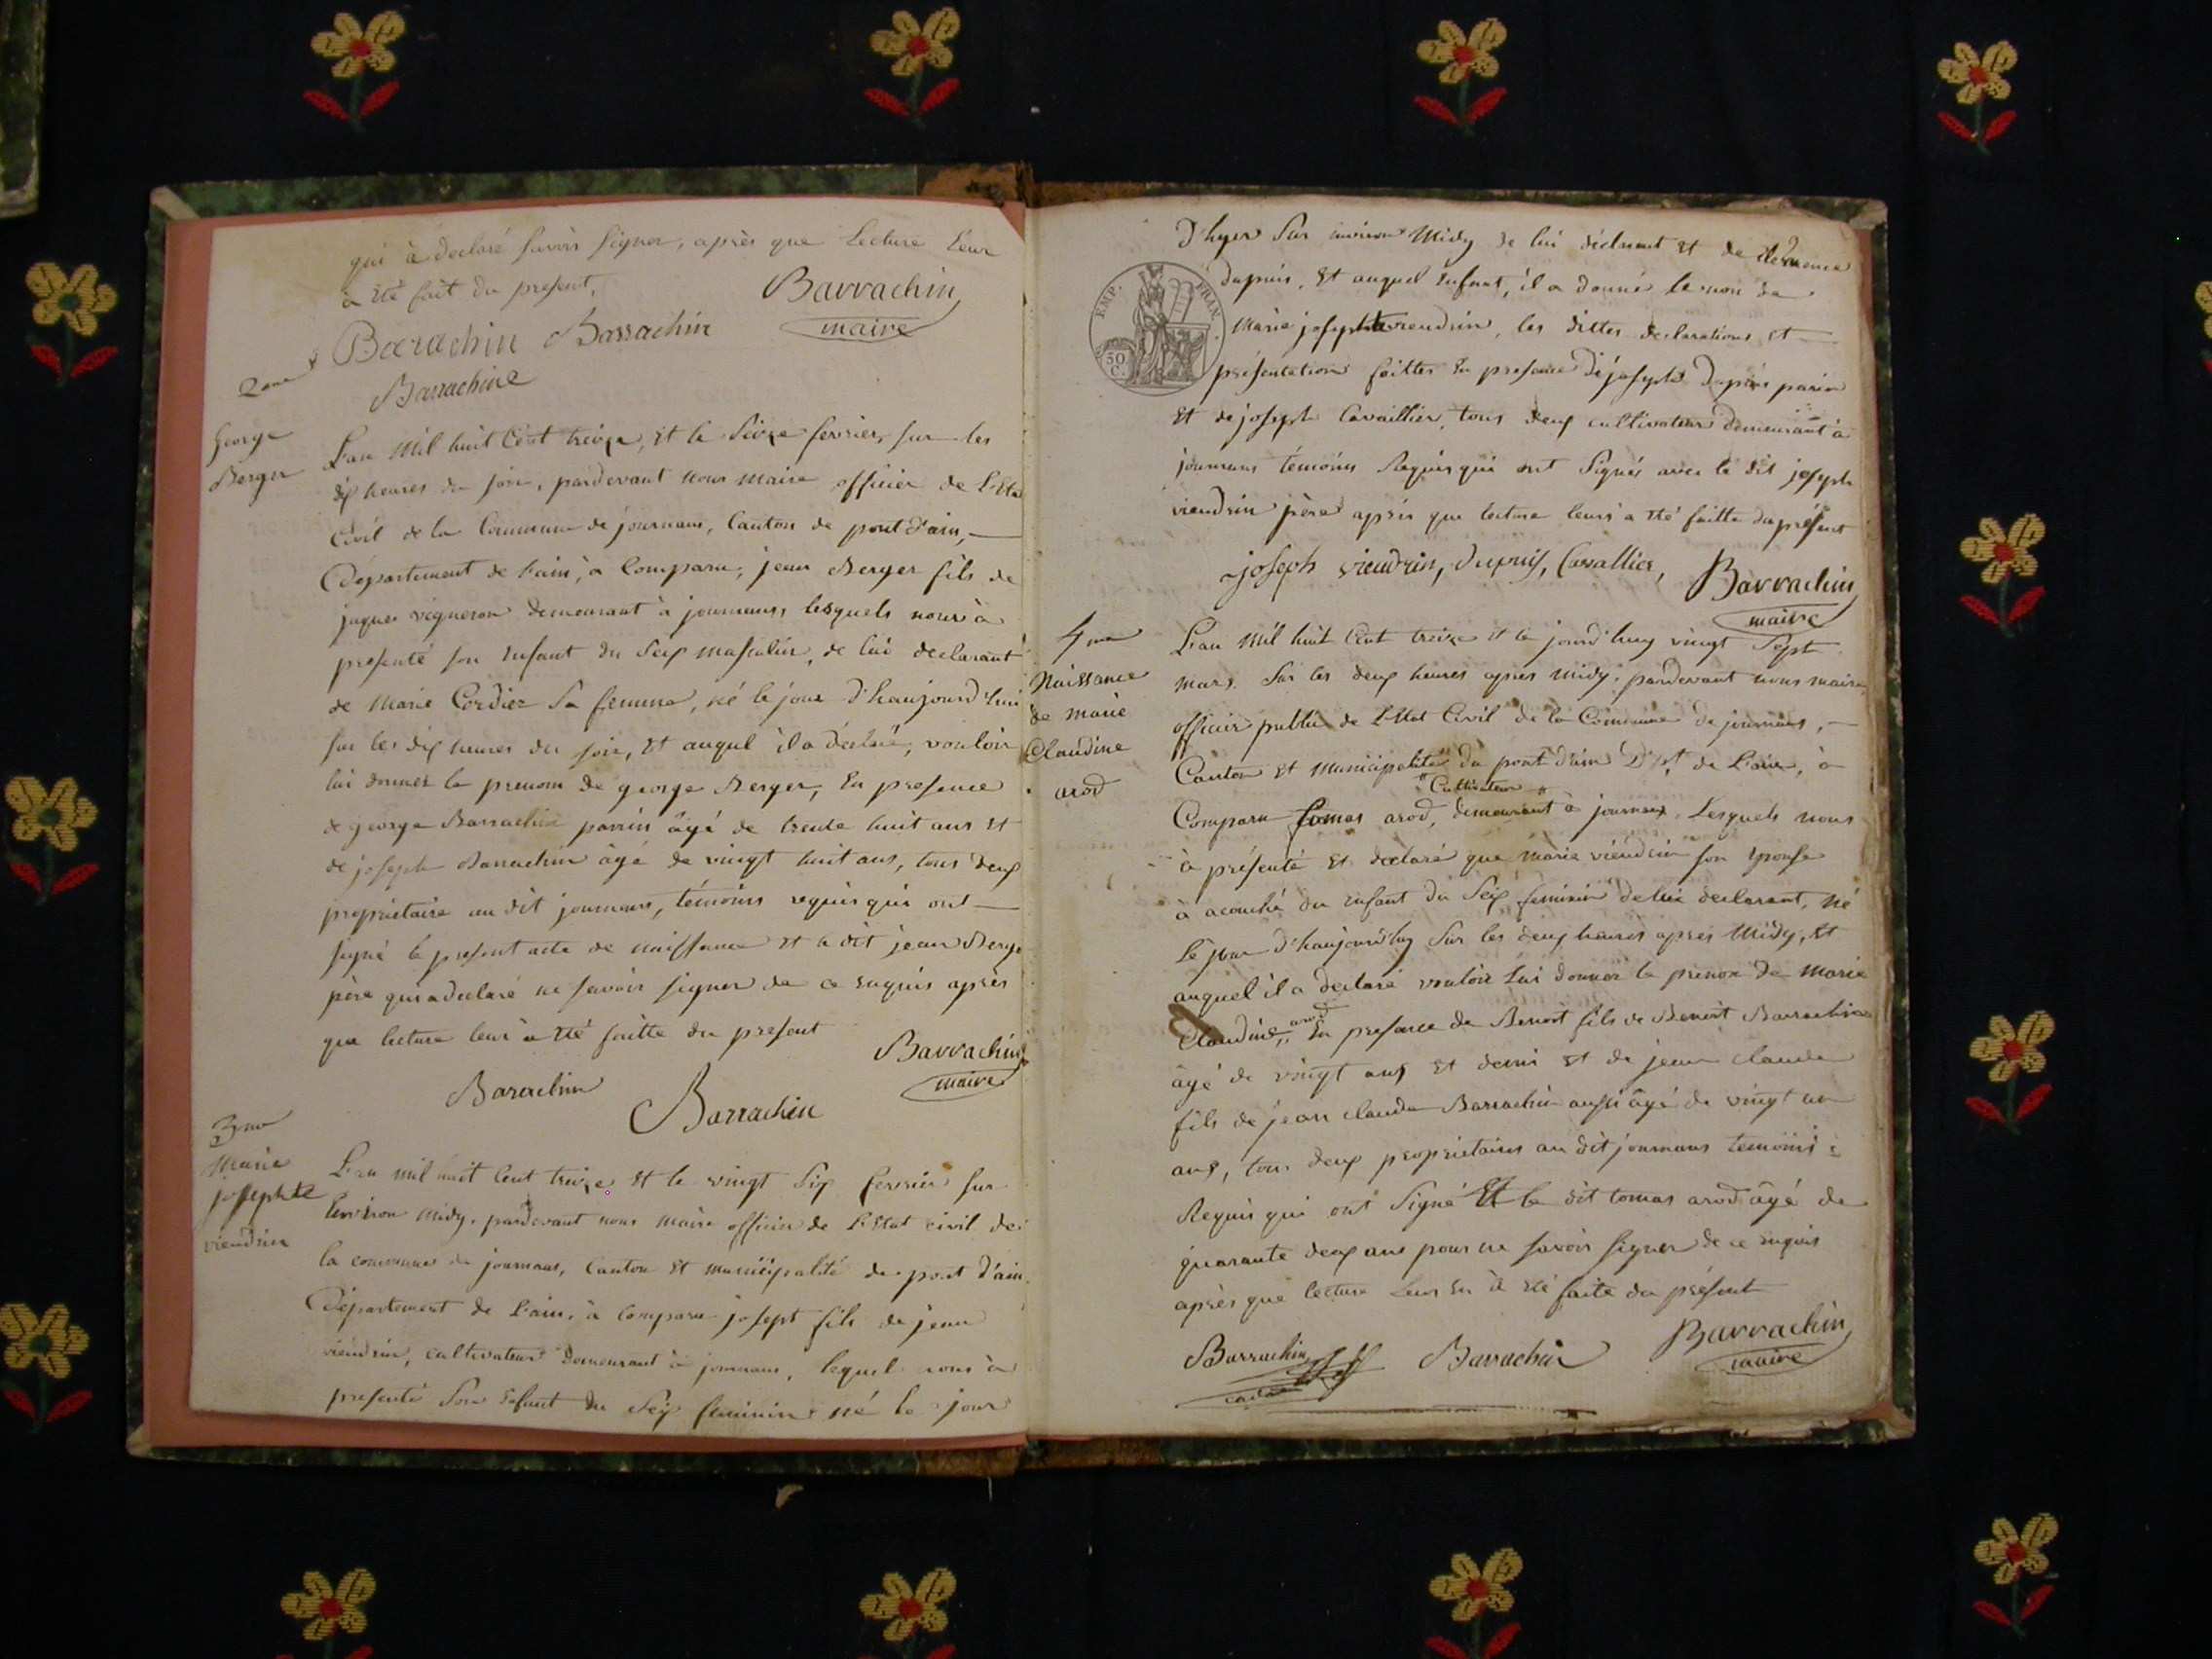 qui à declaré savoir signer, après que Lecture Leur
a été fait du present,
Barrachin
maire
Bararchin Barrachin
Barrachine
2me
George
Berger
L'an mil huit Cent treize, et le seize fevrier, sur les
dix heures du soir, pardevant nous maire officier de L'Etat
Civil de la Commune de journans, Canton de pont d'ain,
Département de L'ain, à Comparu, jean Berger fils de
jaques vigneron demeurant à journans, lesquels nous à
presenté son Enfant du Sex masculin, de lui declarant
de Marie Cordier Sa femme, né le jour d'haujourd'hui
sur les dix heures du soir, et auquel il a déclaré, vouloir
lui donner le prenom de george Berger, En presence
de george Barrachin parrin âgé de trente huit ans et
de joseph Barrachin âgé de vingt huit ans, tous deux
proprietaire au dit journans, témoins requis qui ont
signé le present acte de naissance et le dit jean Berger
père qui a declaré ne savoir signer de ce enquis après
que lecture leur a été faitte du present
Barrachin
maire
Barachin
Barrachin
3me
Marie
josephte
viendrin
L'an mil huit Cent treize et le vingt Six fevrier sur
L'environ midy, pardevant nous maire officier de L'Etat civil de
la commune de journans, Canton et municipalité de pont d'ain,
Département de L'ain, à comparu josept fils de jean
viendrin, cultivateur demeurant à journans, lequel nous à
presenté Son Enfant du Sex feminin né le jour
D'hyer Sur environ Midy de lui déclarant et de
dupuis, Et auquel Enfant, il a donné le nom de
EMP. FRAN.
50
C.
Marie josephte viendrin, les dittes declarations et
présentation faittes En presence de joseph Dupuis parin
et de joseph Cavaillier, tous deux cultivateur demeurant à
journans témoins Requis qui ont Signés avec le dit joseph
viendrin père après que lecture leurs a été faitte du présent
joseph viendrin, dupuis, Cavallier, Barrachin
maire
4me
Naissance
de marie
Claudine
arod
L'an mil huit Cent treize et le jourd'huy vingt Sept
mars Sur les deux heures après midy, pardevant nous maire
officier public de L'Etat Civil de la Commune de journans,
Canton et municipalité du pont d'ain Dpt de L'ain, à
Cultivateur
Comparu tomas arod, demeurant à journans, Lesquels nous
à présenté et declaré que marie viendrin son Epouse
à acouché du enfant du Sex féminin de lui declarant, né
Le jour d'haujourd'huy Sur les deux heures apres Midy, Et
auquel il a declaré vouloir Lui donner le prenom de marie
arod
Claudine, En presence de Benoit fils de Benoit Barrachin
âgé de vingt ans et demi et de jean claude
fils de jean claude Barrachin aussi âgé de vingt un
ans, tous deux proprietaires au dit journans temoins
Requis qui ont Signé Et le dit tomas arod âgé de
quarante deux ans pour ne savoir signer de ce enquis
après que lecture Leur En à été faite du présent
Barrachin Barrachin Barrachin
maire